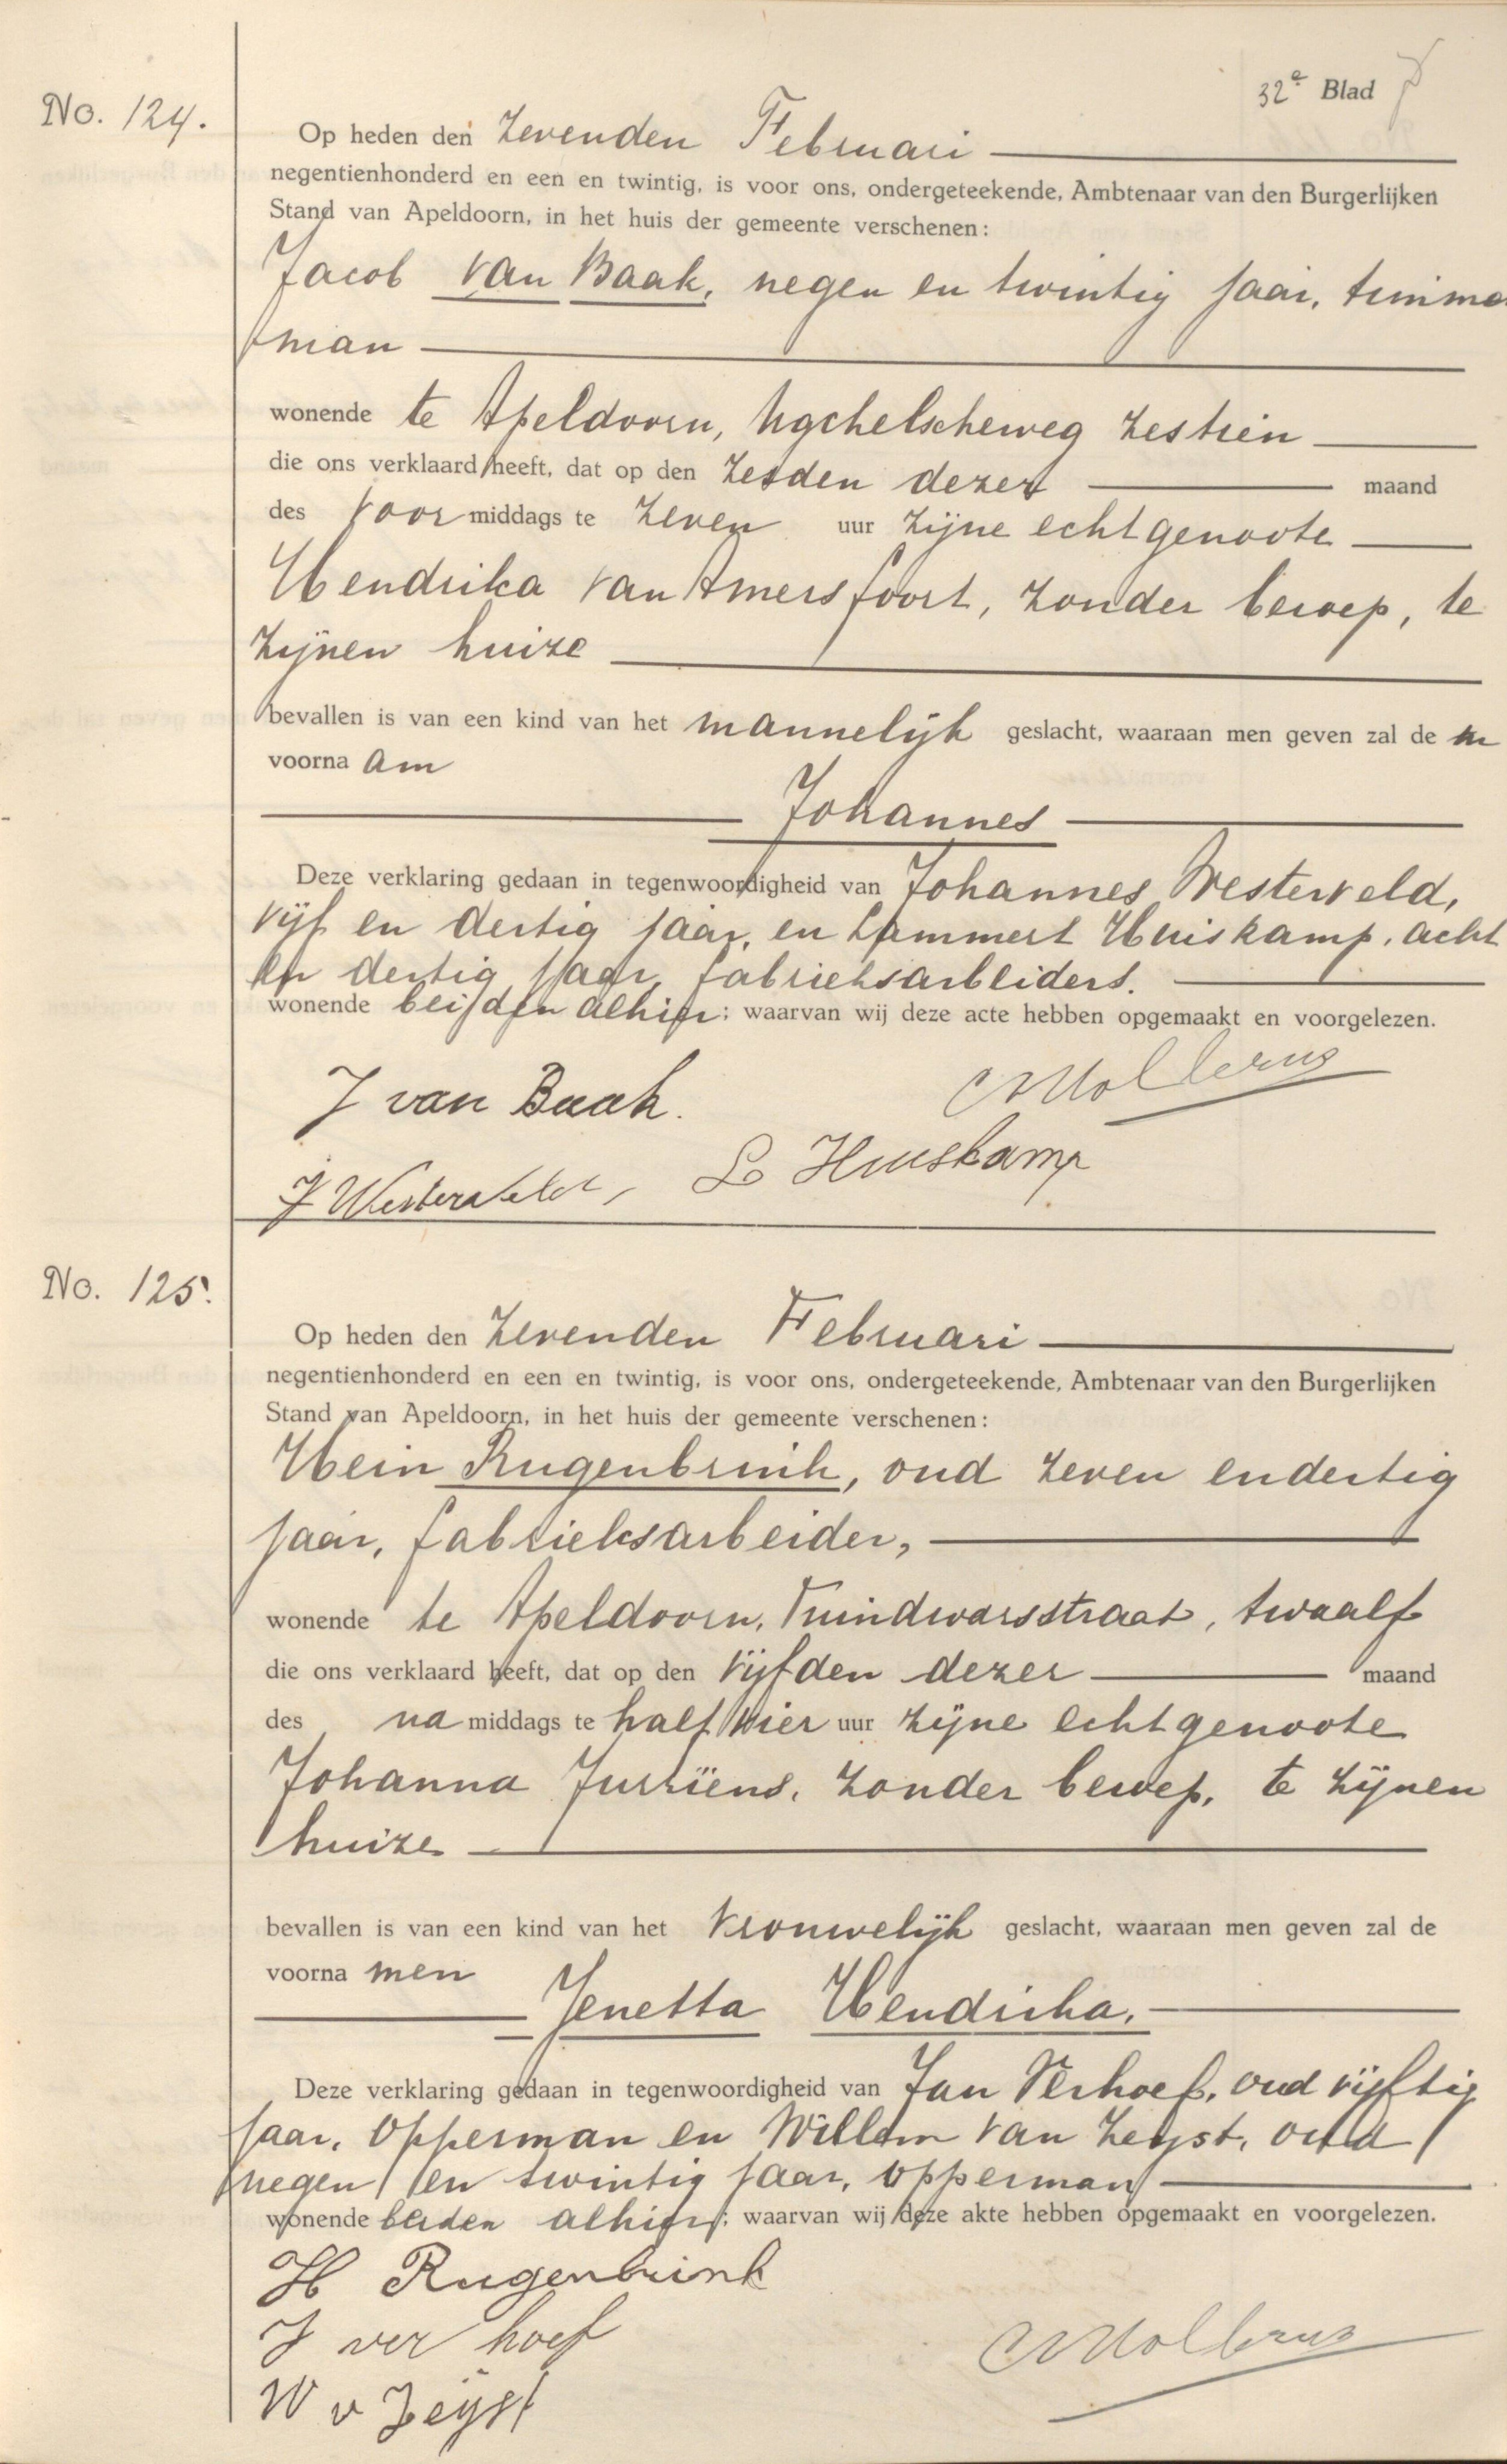 32e Blad
No. 124.
Op heden den Zevenden Februari
negentienhonderd en een en twintig, is voor ons, ondergeteekende, Ambtenaar van den Burgerlijken
Stand van Apeldoorn, in het huis der gemeente verschenen:
Jacob van Baak, negen en twintig jaar, timmer
man
wonende te Apeldoorn, Ugchelscheweg zestien
die ons verklaard heeft, dat op den Zesden dezer maand
des voor middags te zeven uur zijne echtgenoote
Hendrika van Amersfoort, zonder beroep, te
zijnen huize
bevallen is van een kind van het mannelijk geslacht, waaraan men geven zal de n
voorna am
Johannes
Deze verklaring gedaan in tegenwoordigheid van Johannes Westerveld,
vijf en dertig jaar, en Lammert Huiskamp, acht
en dertig jaar, fabrieksarbeiders.
wonende beijden alhier; waarvan wij deze acte hebben opgemaakt en voorgelezen.
J van Baak.
J Westerveld, L Huiskamp
No. 125.
Op heden den Zevenden Februari
negentienhonderd en een en twintig, is voor ons, ondergeteekende, Ambtenaar van den Burgerlijken
Stand van Apeldoorn, in het huis der gemeente verschenen:
Hein Rugenbrink, oud zeven en dertig
jaar, fabrieksarbeider,
wonende te Apeldoorn, Tuindwarsstraat, twaalf
die ons verklaard heeft, dat op den vijfden dezer maand
des na middags te half vier uur zijne echtgenoote
Johanna Jurriëns, zonder beroep, te zijnen
huize
bevallen is van een kind van het vrouwelijk geslacht, waaraan men geven zal de
voorna men
Jenetta Hendrika.
Deze verklaring gedaan in tegenwoordigheid van Jan Verhoef, oud vijftig
jaar, opperman en Willem van Zeyst, oud
negen en twintig jaar, opperman
wonende beiden alhier; waarvan wij deze akte hebben opgemaakt en voorgelezen.
H Rugenbrink
J ver hoef
W v Zeijst